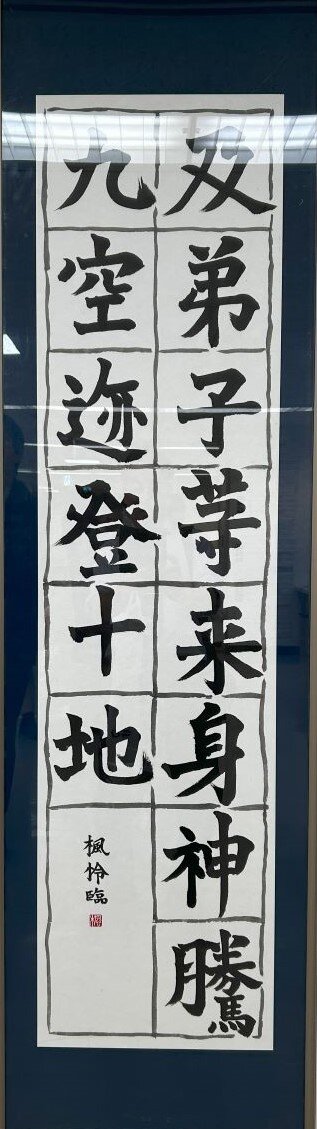 及弟子等来身神騰
九空迹登十地
楓怜臨